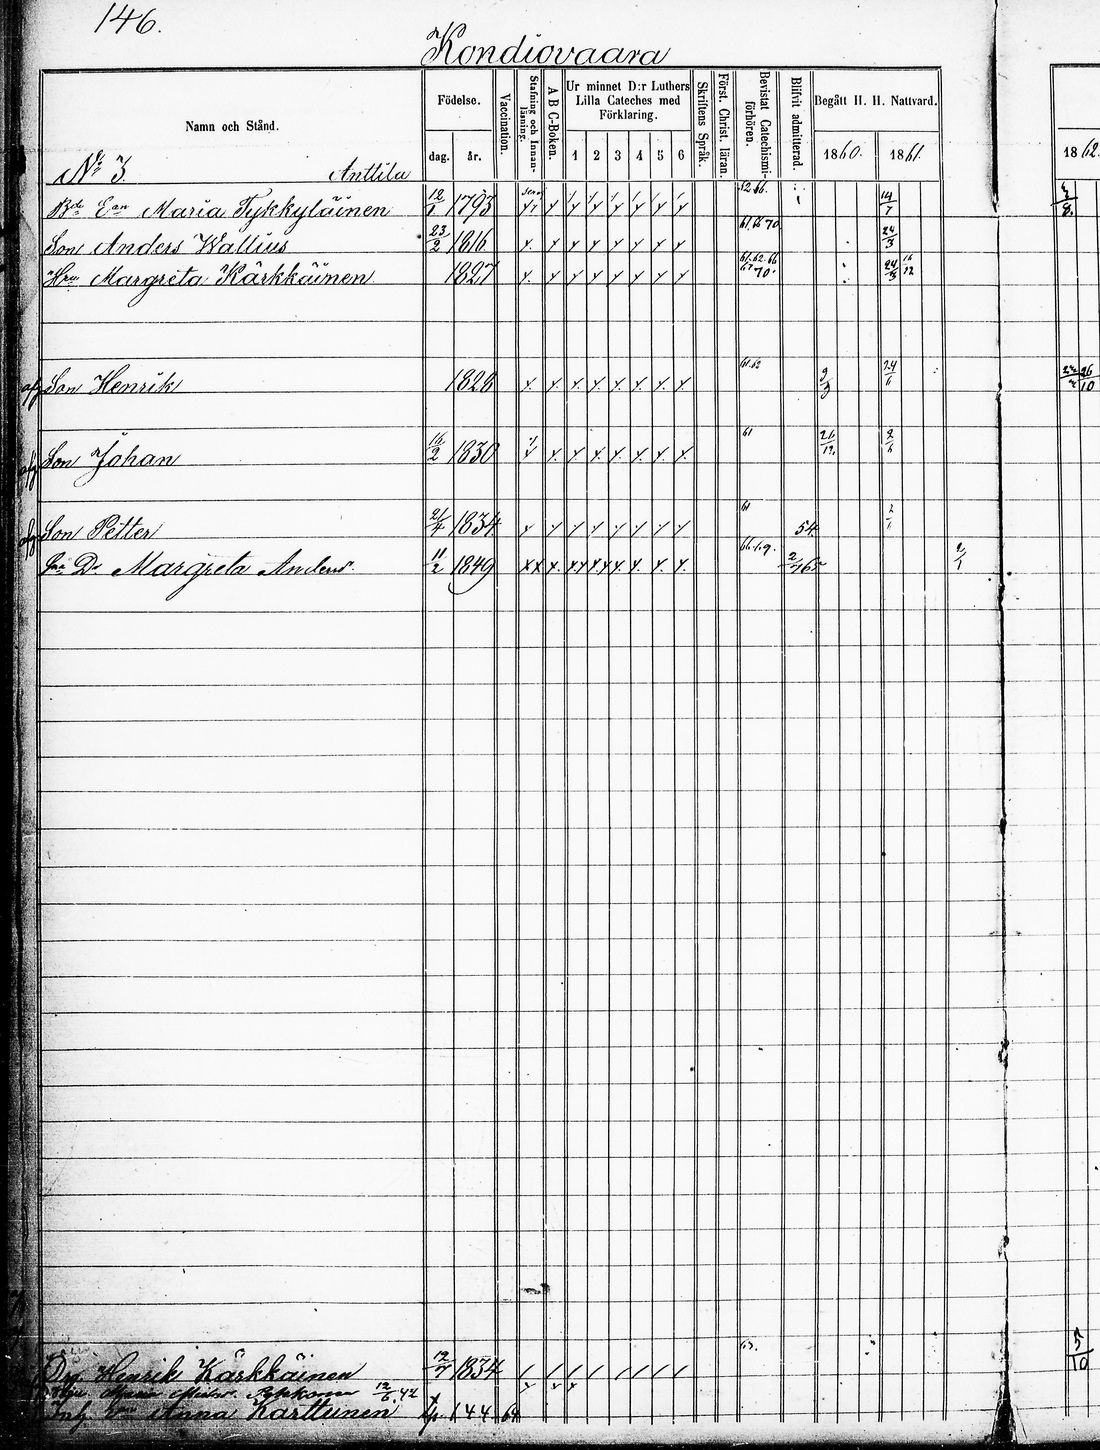 146.
Kondiovaara
Namn och Stånd.
Födelse.
dag. år.
Vaccination.
Stafning och Innanläsning.
A B C-Boken.
Ur minnet D:r Luthers Lilla Cateches med Förklaring.
1 2 3 4 5 6
Skriftens Språk.
Först. Christ. läran.
Bevistat Catechismiförhören.
Blifvit admitterad.
Begått H. H. Nattvard.
1860. 1861. 1862.
No 3 Anttila
Bde Ean Maria Tykkyläinen 12/7 1793 52 66. 14/7
Son Anders Wallius 23/2 1816 61 66 70 24/3
Hru Margreta Kärkkäinen 1827 61. 62. 66 67 70. 24/3 16/12
Son Henrik 1828 61. 62 24/6
Son Johan 16/2 1830 61 26/12 2/6
Son Petter 21/4 1834 61 54.
Dr Margreta Anders. 11/2 1849 66. 69. 2/7 65
Henrik Kärkkäinen 12/7 1834 63. 5/10
Maria 12/6 42
Inh Anna Karttunen 44